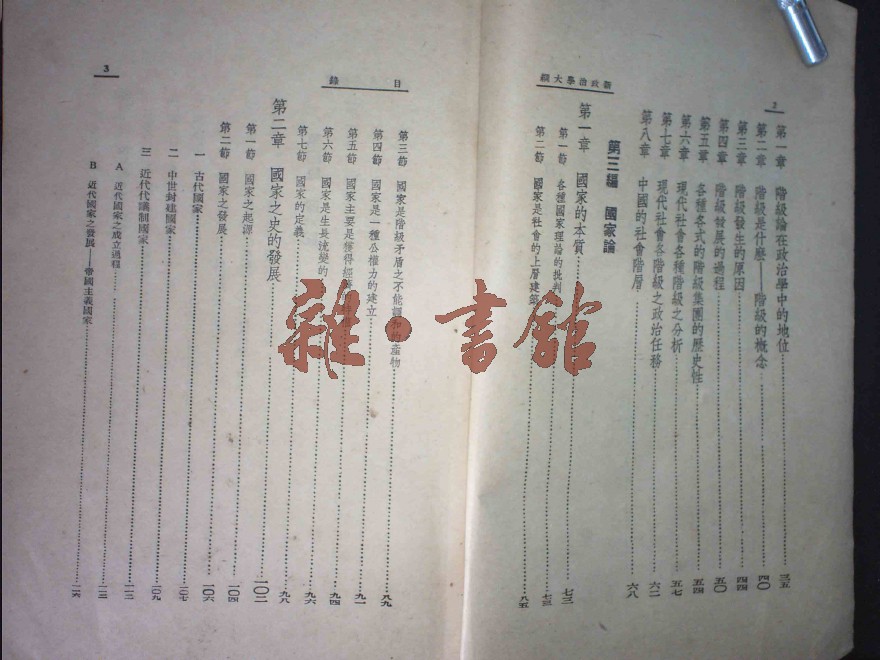 新政治學大綱
2
第一章 階級論在政治學中的地位……三五
第二章 階級是什麼——階級的概念……四〇
第三章 階級發生的原因……四四
第四章 階級發展的過程……五〇
第五章 各種各式的階級集團的歷史性……五四
第六章 現代社會各種階級之分析……五七
第七章 現代社會各階級之政治任務……六二
第八章 中國的社會階層……六八
第三編 國家論
第一章 國家的本質……七三
第一節 各種國家理論的批判……七三
第二節 國家是社會的上層建築……八五
目錄
3
第三節 國家是階級矛盾之不能調和的產物……八九
第四節 國家是一種公權力的建立……九一
第五節 國家主要是獲得經濟……九四
第六節 國家是生長流變的……九六
第七節 國家的定義……九八
第二章 國家之史的發展……一〇二
第一節 國家之起源……一〇四
第二節 國家之發展……一〇六
一 古代國家……一〇七
二 中世封建國家……一〇九
三 近代代議制國家……一一三
A 近代國家之成立過程……一一三
B 近代國家之發展——帝國主義國家……一一六
雜·書館